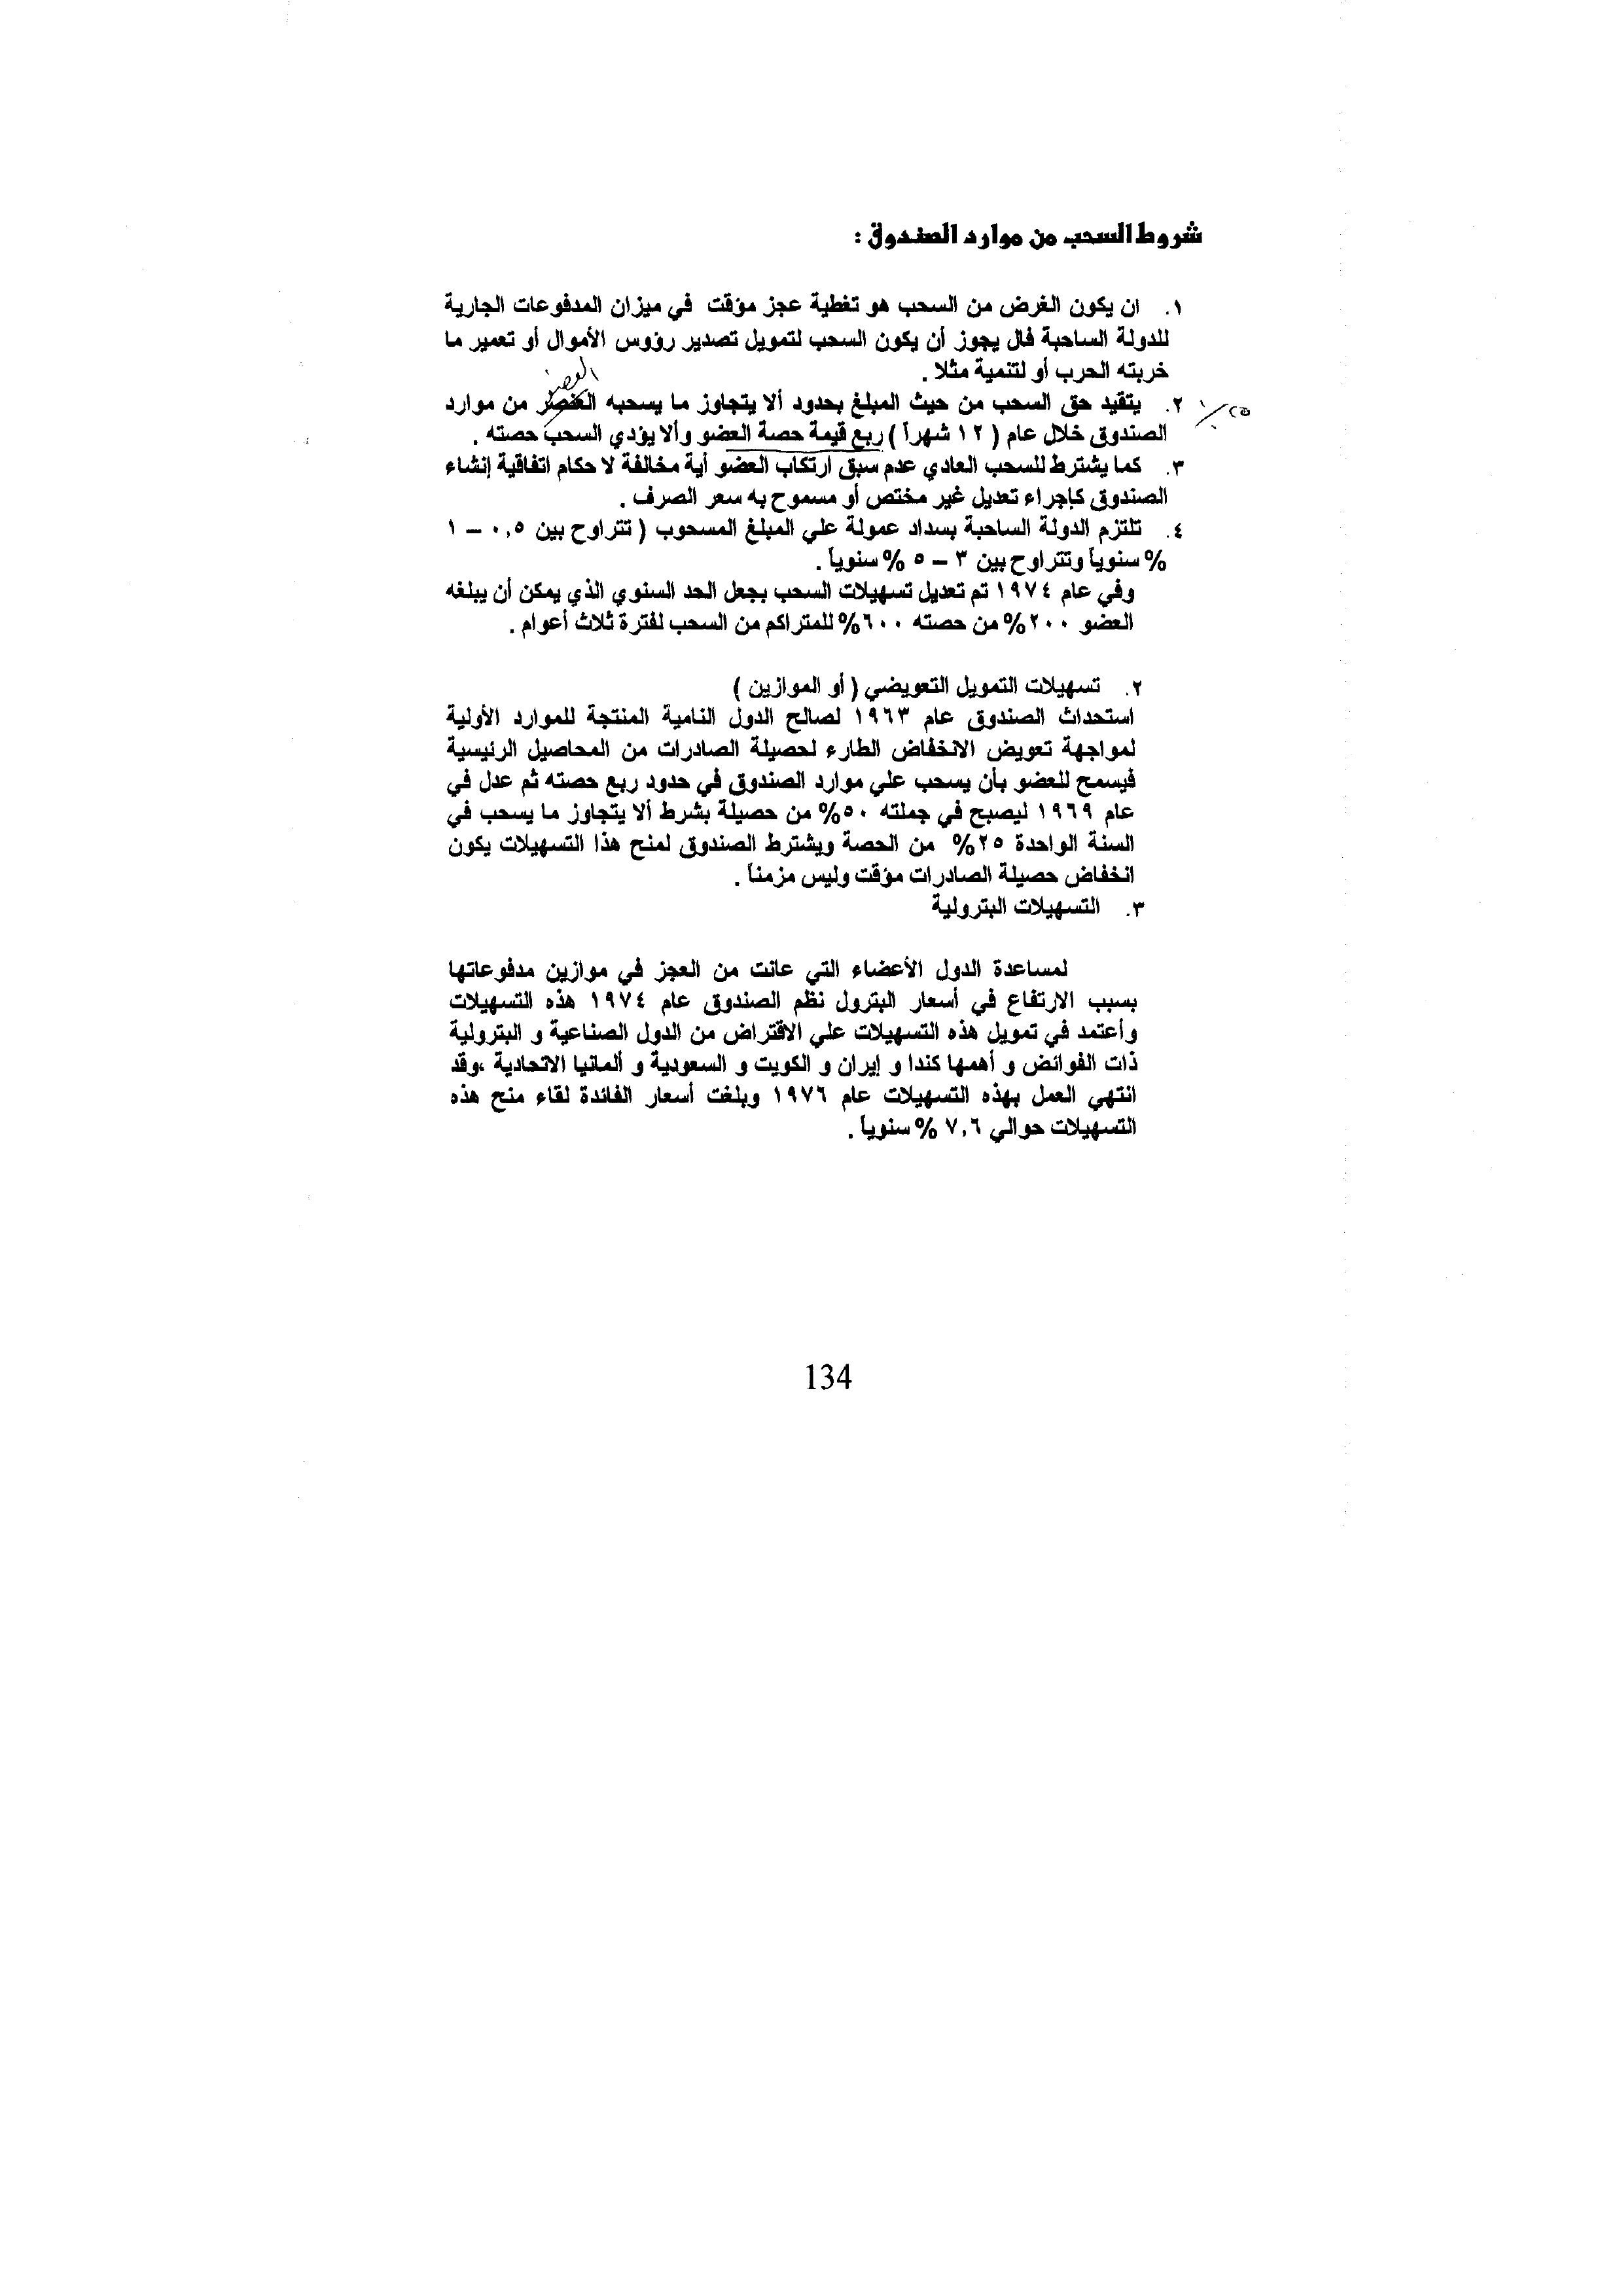 شروط السحب من موارد الصندوق :
١. ان يكون الغرض من السحب هو تغطية عجز مؤقت في ميزان المدفوعات الجارية
للدولة الساحبة فال يجوز أن يكون السحب لتمويل تصدير رؤوس الأموال أو تعمير ما
خربته الحرب أو لتنمية مثلا .
العضو
٢. يتقيد حق السحب من حيث المبلغ بحدود ألا يتجاوز ما يسحبه العنصر من موارد
٢٥٪
الصندوق خلال عام ( ١٢ شهراً ) ربع قيمة حصة العضو وألا يؤدي السحب حصته .
٣. كما يشترط للسحب العادي عدم سبق ارتكاب العضو أية مخالفة لا حكام اتفاقية إنشاء
الصندوق كإجراء تعديل غير مختص أو مسموح به سعر الصرف .
٤. تلتزم الدولة الساحبة بسداد عمولة علي المبلغ المسحوب ( تتراوح بين ٠,٥ – ١
% سنوياً وتتراوح بين ٣ – ٥ % سنوياً .
وفي عام ١٩٧٤ تم تعديل تسهيلات السحب بجعل الحد السنوي الذي يمكن أن يبلغه
العضو ٢٠٠% من حصته ٦٠٠% للمتراكم من السحب لفترة ثلاث أعوام .
٢. تسهيلات التمويل التعويضي ( أو الموازين )
استحداث الصندوق عام ١٩٦٣ لصالح الدول النامية المنتجة للموارد الأولية
لمواجهة تعويض الانخفاض الطارء لحصيلة الصادرات من المحاصيل الرئيسية
فيسمح للعضو بأن يسحب علي موارد الصندوق في حدود ربع حصته ثم عدل في
عام ١٩٦٩ ليصبح في جملته ٥٠% من حصيلة بشرط ألا يتجاوز ما يسحب في
السنة الواحدة ٢٥% من الحصة ويشترط الصندوق لمنح هذا التسهيلات يكون
انخفاض حصيلة الصادرات مؤقت وليس مزمناً .
٣. التسهيلات البترولية
لمساعدة الدول الأعضاء التي عانت من العجز في موازين مدفوعاتها
بسبب الارتفاع في أسعار البترول نظم الصندوق عام ١٩٧٤ هذه التسهيلات
وأعتمد في تمويل هذه التسهيلات علي الاقتراض من الدول الصناعية و البترولية
ذات الفوائض و أهمها كندا و إيران و الكويت و السعودية و ألمانيا الاتحادية ،وقد
انتهي العمل بهذه التسهيلات عام ١٩٧٦ وبلغت أسعار الفائدة لقاء منح هذه
التسهيلات حوالي ٧,٦ % سنوياً .
134